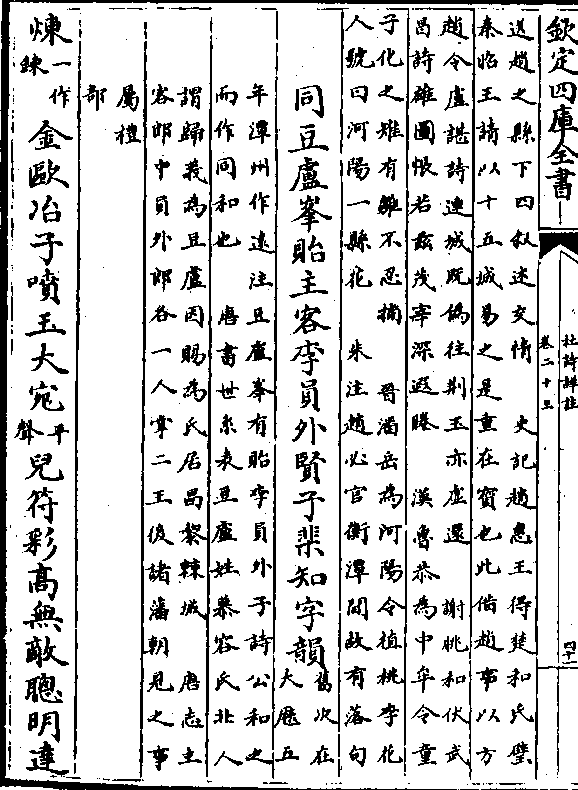 欽定四庫全書
杜詩詳註
卷二十三
四十一
送趙之縣下四叙述交情　史記趙惠王得楚和氏璧
秦昭王請以十五城易之是重在寳也此借趙事以方
趙令盧諶詩連城既偽往荆玉亦虚還　謝朓和伏武
昌詩雄圖悵若兹茂宰深遐睠　漢魯恭為中牟令童
子化之雉有雛不忍捕　晉潘岳為河陽令植桃李花
人號曰河陽一縣花　朱注趙必官衡潭間故有落句
同豆盧峯貽主客李員外賢子棐知字韻
舊次在
大歴五
年潭州作逺注豆盧峯有貽李員外子詩公和之
而作同和也　唐書世系表豆盧姓慕容氏北人
謂歸義為豆盧因賜為氏居昌黎棘城　唐志主
客郎中員外郎各一人掌二王後諸藩朝見之事
屬禮
部
煉
一作
鍊
金歐冶子噴玉大宛
平
聲
兒符彩髙無敵聰明達